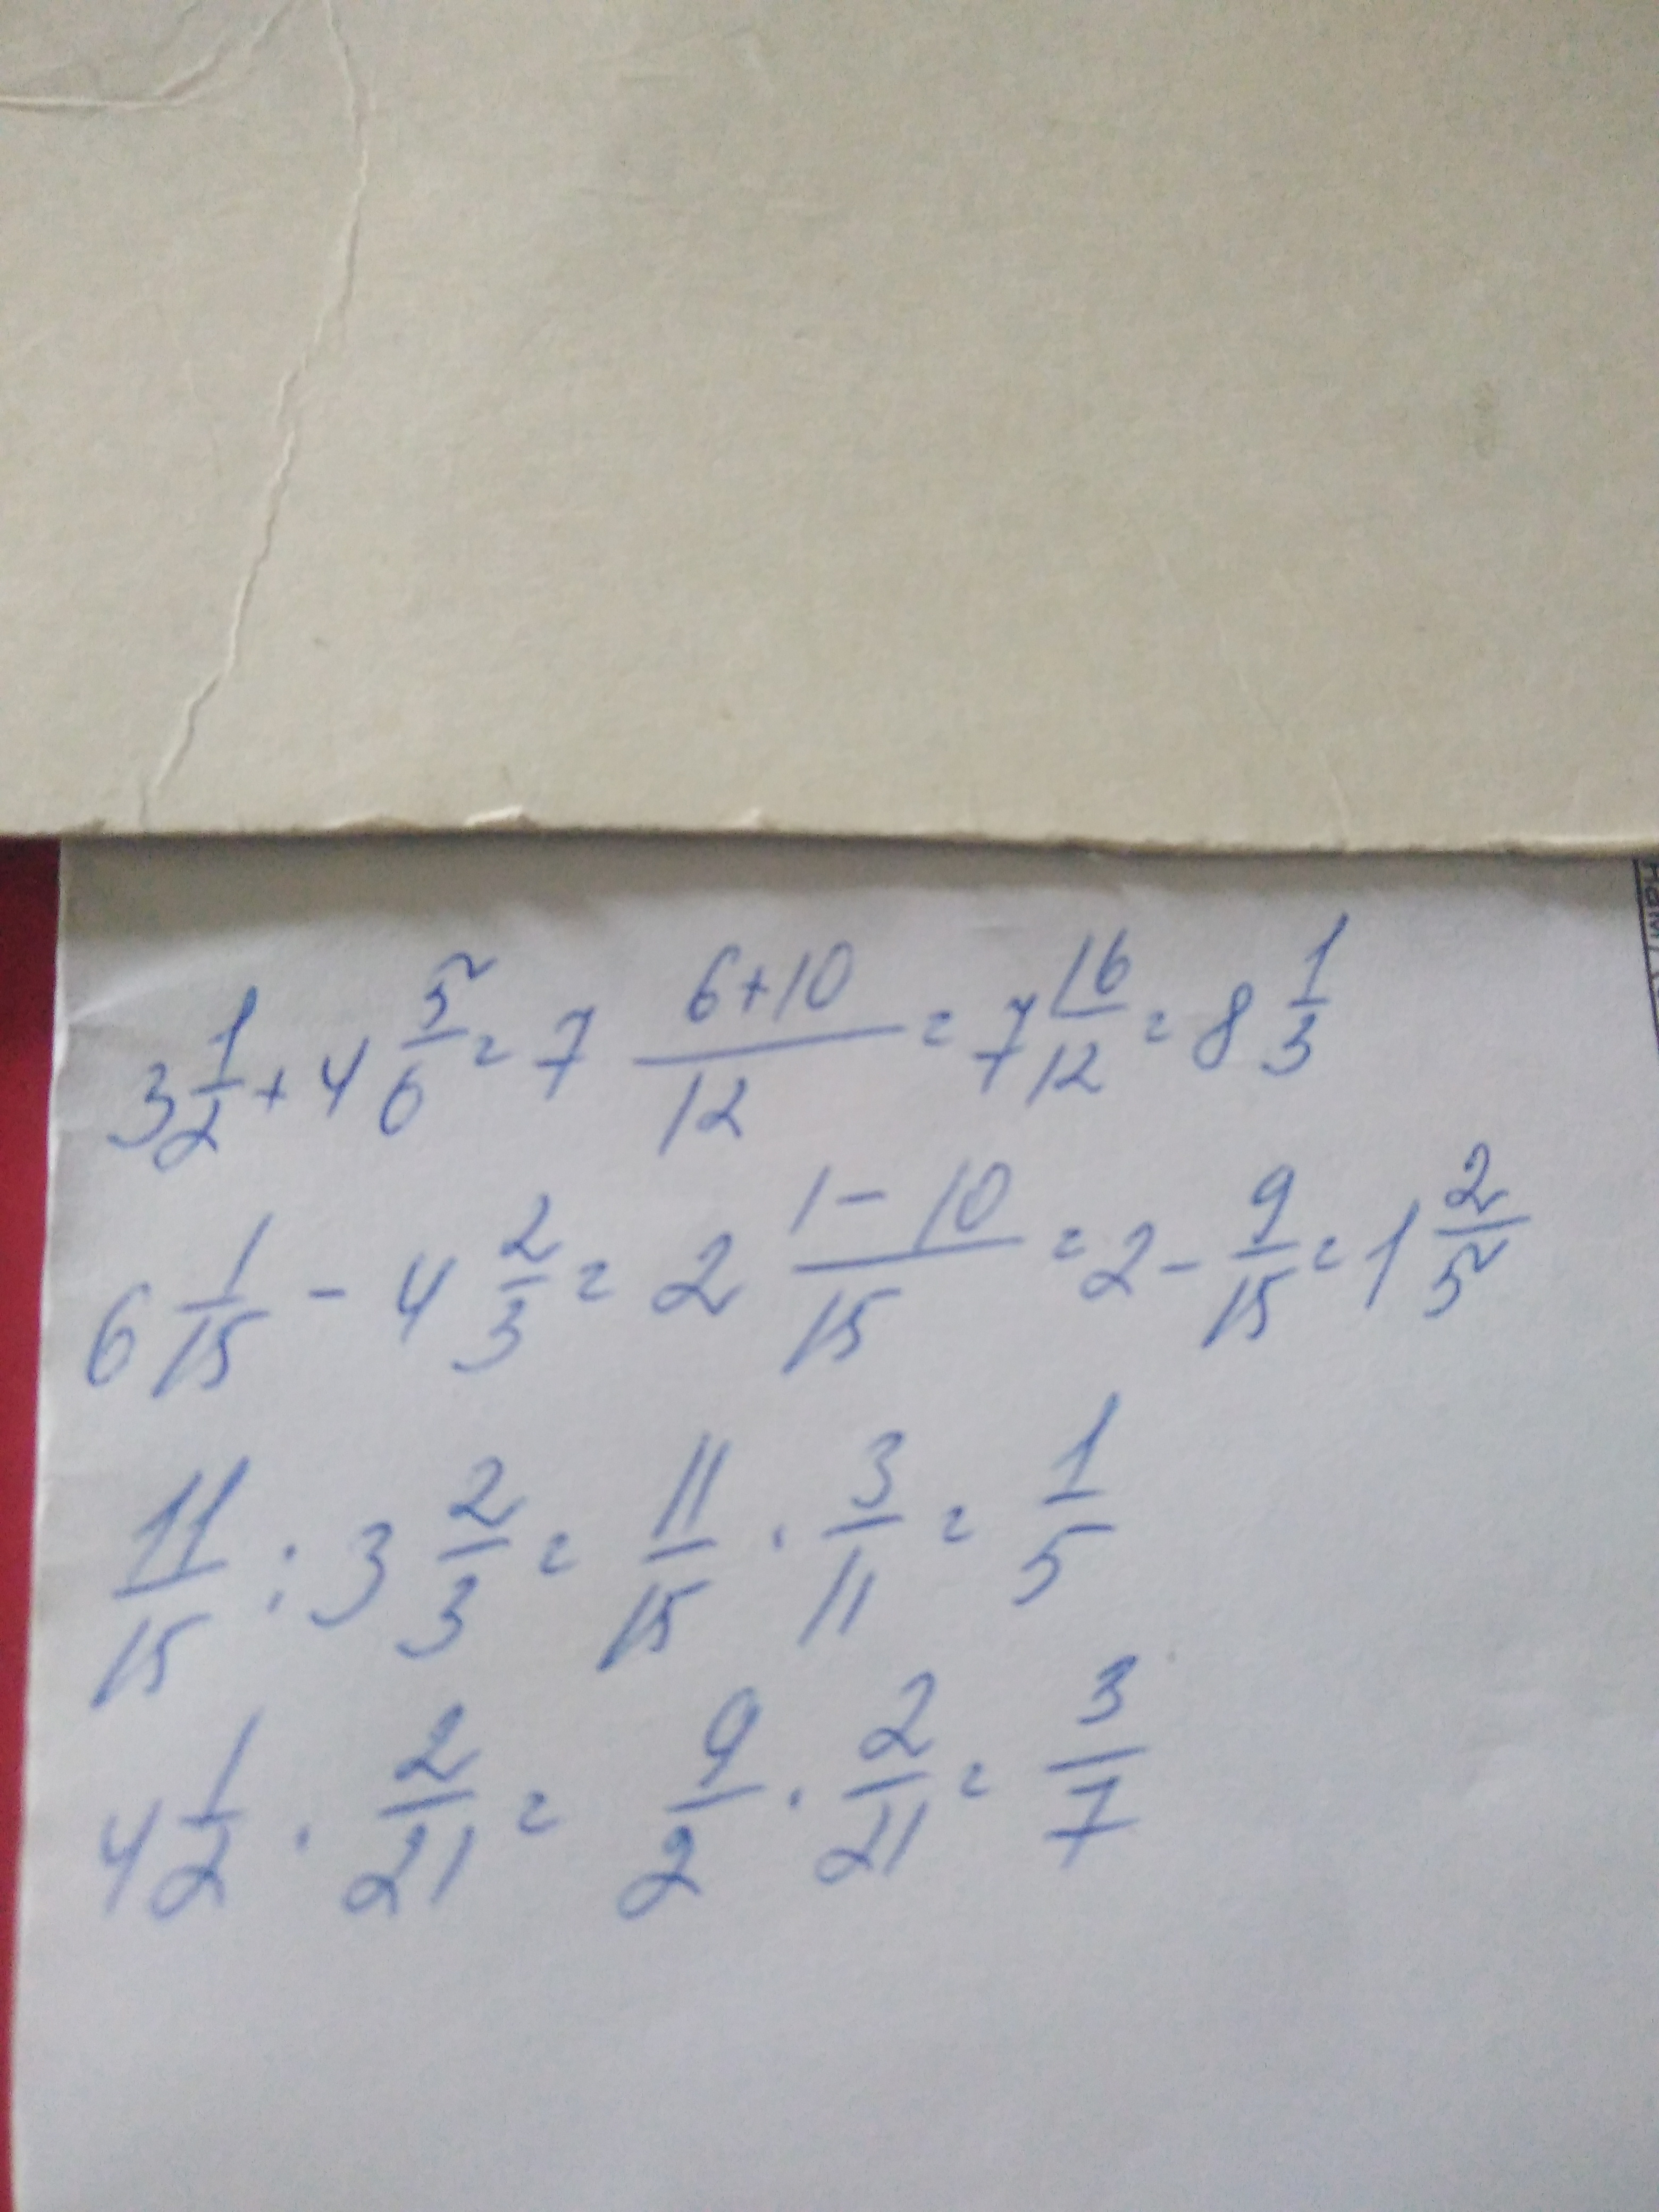 3 1/2 + 4 5/6 = 7 (6+10)/12 = 7 16/12 = 8 1/3
6 1/15 - 4 2/3 = 2 (1-10)/15 = 2 - 9/15 = 1 2/5
11/15 : 3 2/3 = 11/15 · 3/11 = 1/5
4 1/2 · 2/21 = 9/2 · 2/21 = 3/7